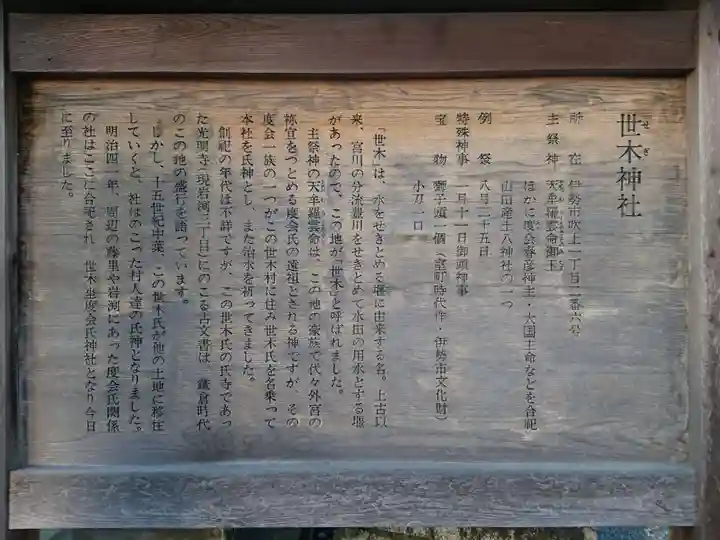 世木神社
せぎ
所在 伊勢市吹上一丁目二番六号
主祭神 天牟羅雲命御玉
ほかに度会春彦神主・大国主命などを合祀
山田産土八神社の一つ
例祭 八月二十五日
特殊神事 一月十一日御頭神事
宝物 獅子頭一個（室町時代作・伊勢市文化財）
小刀一口
「世木」は、水をせきとめる堰に由来する名。上古以
来、宮川の分流豊川をせきとめて水田の用水とする堰
があったので、この地が「世木」と呼ばれました。
主祭神の天牟羅雲命は、この地の豪族で代々外宮の
祢宜をつとめる度会氏の遠祖とされる神ですが、その
度会一族の一つがこの世木村に住み世木氏を名乗って
本社を氏神とし、また治水を祈ってきました。
創祀の年代は不詳ですが、この世木氏の氏寺であっ
た光明寺（現岩渕三丁目）にのこる古文書は、鎌倉時代
のこの地の盛行を語っています。
しかし、十五世紀中葉、この世木氏が他の土地に移住
していくと、社はのこった村人達の氏神となりました。
明治四一年、周辺の藤里や岩渕にあった度会氏関係
の社はここに合祀され 世木坐度会氏神社となり今日
に至りました。